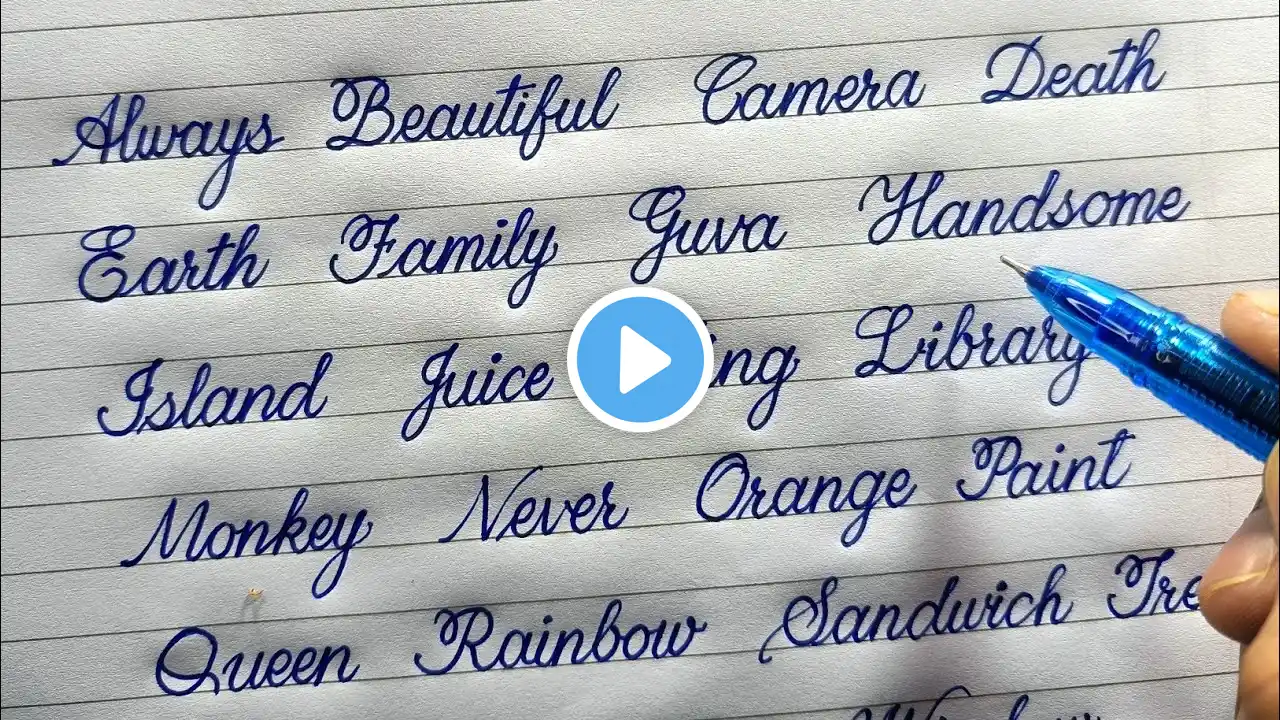 Always Beautiful Camera Death
Earth Family Guva Handsome
Island Juice Library
Monkey Never Orange Paint
Queen Rainbow Sandwich